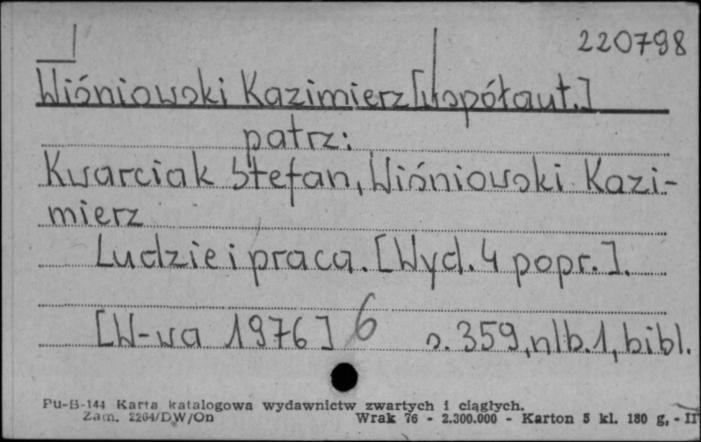 220798
Wiśniowski Kazimierz [współaut.]
patrz:
Kwarciak Stefan, Wiśniowski Kazi-
mierz
Ludzie i praca. [Wyd. 4 popr.].
[W-wa 1976] 6 s. 359, nlb. 1, bibl.
Pu-B-144 Karta katalogowa wydawnictw zwartych i ciągłych.
Zam. 2264/DW/On Wrak 76 - 2.300.000 - Karton 5 kl. 180 g, - II